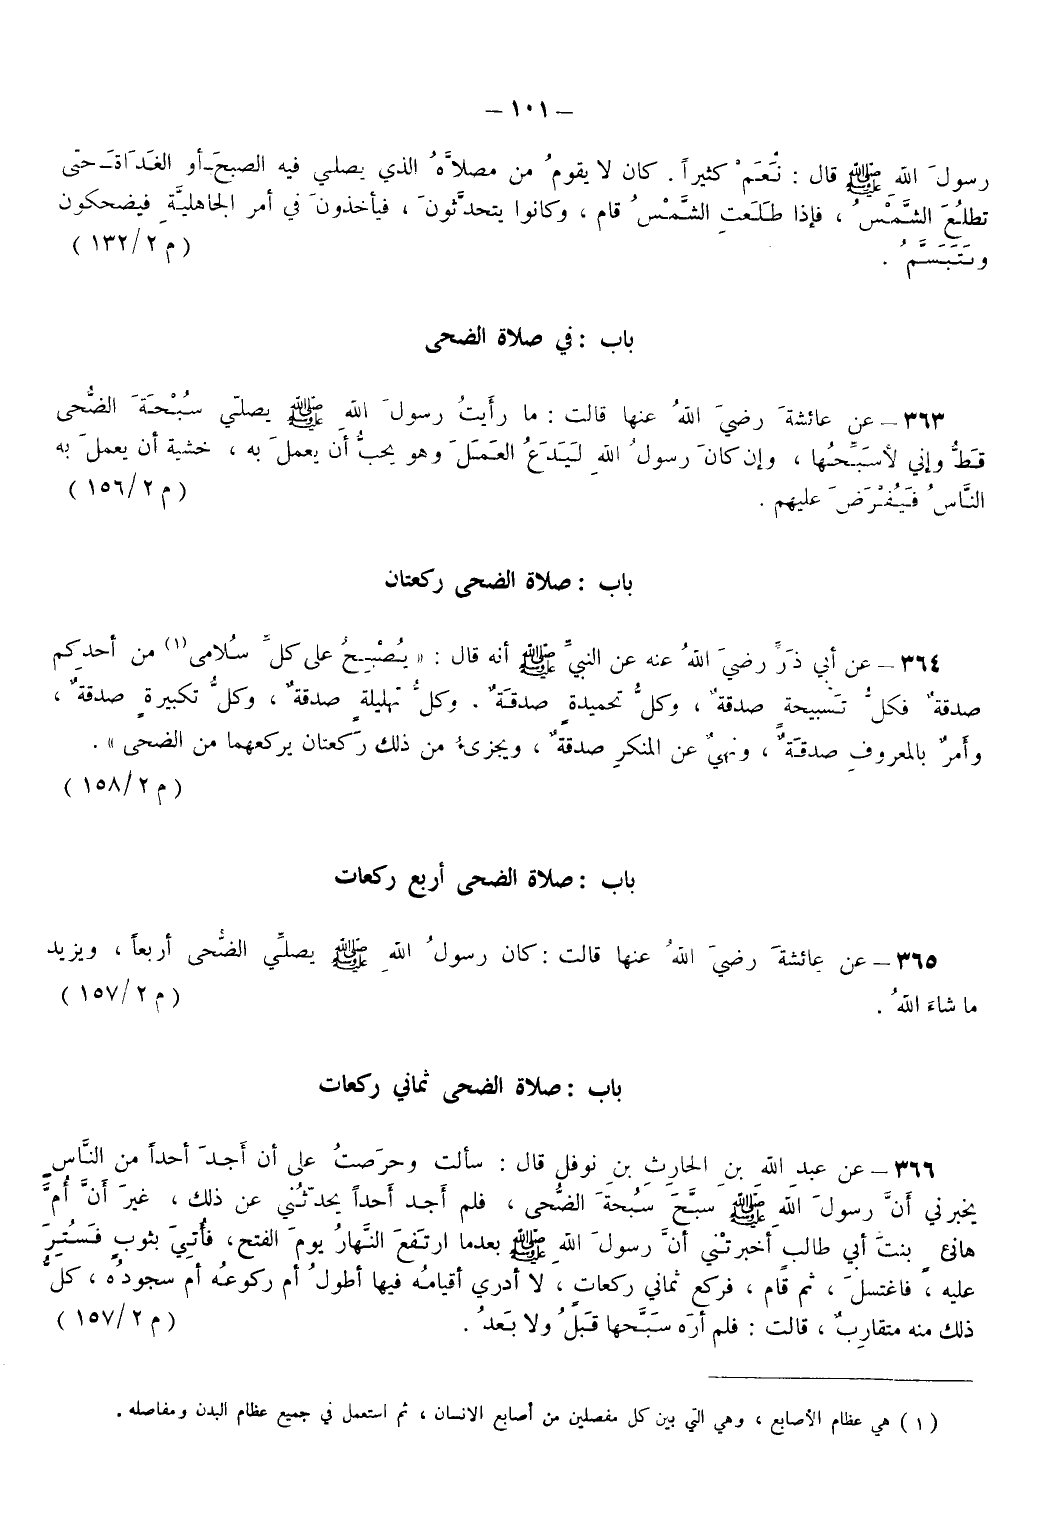 — ١٠١ —
رسولَ اللهِ ﷺ قال : نَعَمْ كثيراً . كان لا يقومُ من مصلاَّهُ الذي يصلي فيه الصبحَ ـ أو الغَدَاةَ ـ حتى
تطلُعَ الشَّمْسُ ، فإذا طَلَعَتِ الشَّمْسُ قام ، وكانوا يتحدَّثونَ ، فيأخذونَ في أمر الجاهليَّةِ فيضحكون
ويَتَبَسَّمُ . ( م ٢/١٣٢ )
باب : في صلاة الضحى
٣٦٣ – عن عائشةَ رضيَ اللهُ عنها قالت : ما رأيتُ رسولَ اللهِ ﷺ يصلّي سُبْحَةَ الضُّحى
قَطُّ وإني لأُسَبِّحُها ، وإن كانَ رسولُ اللهِ لَيَدَعُ العَمَلَ وهو يحبُّ أن يعملَ به ، خشية أن يعملَ به
النَّاسُ فَيُفْرَضَ عليهم . ( م ٢/١٥٦ )
باب : صلاة الضحى ركعتان
٣٦٤ – عن أبي ذَرٍّ رضيَ اللهُ عنه عن النبيِّ ﷺ أنه قال : « يُصْبِحُ على كلِّ سُلامى(١) من أحدِكم
صدقةٌ فكلُّ تَسْبيحةٍ صدقةٌ ، وكلُّ تحميدةٍ صدقَةٌ . وكلُّ تهليلةٍ صدقةٌ ، وكلُّ تكبيرةٍ صدقةٌ ،
وأمرٌ بالمعروفِ صدقَةٌ ، ونهيٌ عن المنكرِ صدقةٌ ، ويجزىءُ من ذلك رَكعتان يركعهما من الضحى » .
( م ٢/١٥٨ )
باب : صلاة الضحى أربع ركعات
٣٦٥ – عن عائشةَ رضيَ اللهُ عنها قالت : كان رسولُ اللهِ ﷺ يصلِّي الضُّحى أربعاً ، ويزيد
ما شاءَ اللهُ . ( م ٢/١٥٧ )
باب : صلاة الضحى ثماني ركعات
٣٦٦ – عن عبدِ اللهِ بنِ الحارثِ بنِ نوفلٍ قال : سألت وحرَصتُ على أن أَجدَ أحداً من النَّاسِ
يخبرني أنَّ رسولَ اللهِ ﷺ سبَّحَ سُبحةَ الضُّحى ، فلم أَجد أحداً يحدّثُني عن ذلك ، غيرَ أنَّ أُمَّ
هانئٍ بنتَ أبي طالبٍ أخبرتْني أنَّ رسولَ اللهِ ﷺ بعدما ارتَفعَ النَّهارُ يومَ الفتحِ ، فأُتِيَ بثوبٍ فَسُتِرَ
عليه ، فاغتسلَ ، ثم قام ، فركع ثماني ركعاتٍ ، لا أدري أقيامُه فيها أطولُ أم ركوعُه أم سجودُه ، كلُّ
ذلك منه متقاربٌ ، قالت : فلم أرَه سَبَّحها قَبلُ ولا بَعدُ . ( م ٢/١٥٧ )
( ١ ) هي عظام الأصابع ، وهي التي بين كل مفصلين من أصابع الانسان ، ثم استعمل في جميع عظام البدن ومفاصله .